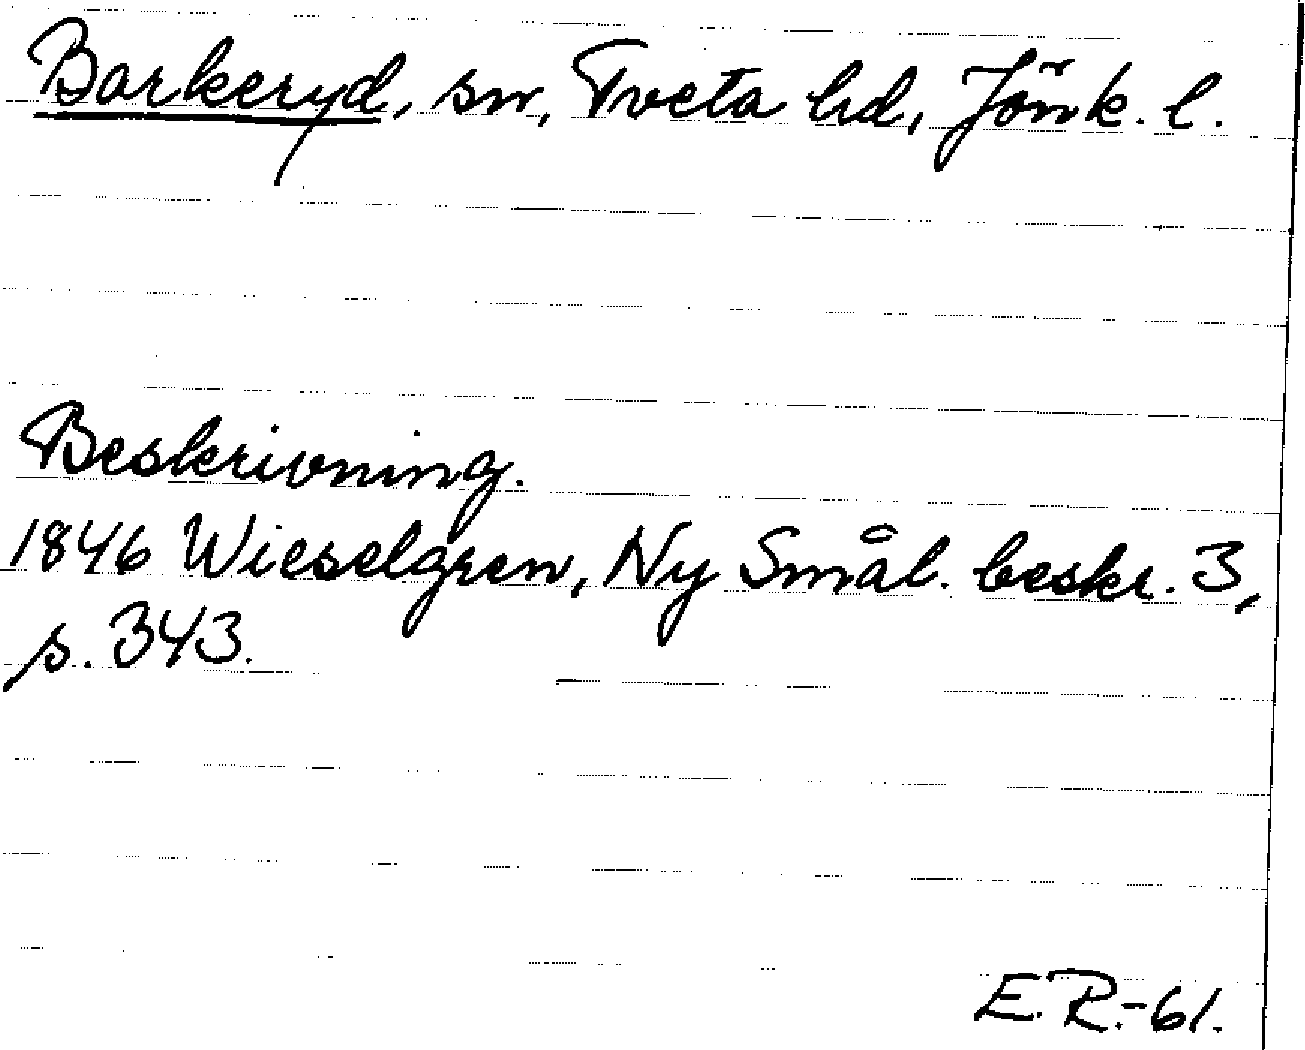 Barkeryd, sn, Tveta hd, Jönk. l.
Beskrivning.
1846 Wieselgren, Ny Smål. beskr. 3,
s. 343.
E.R.-61.